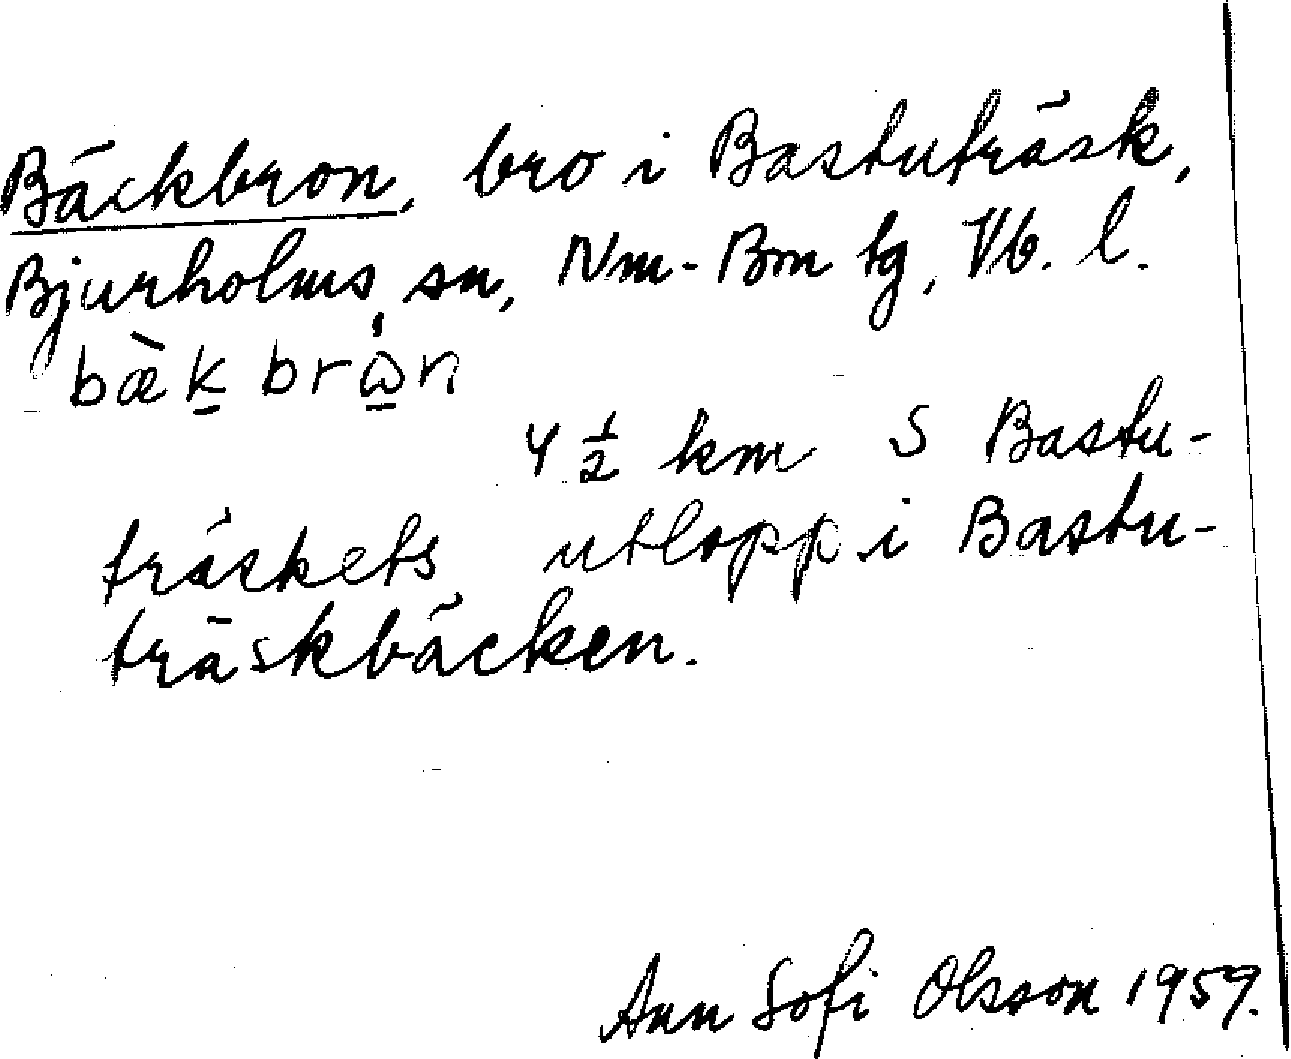 Bäckbron, bro i Bastuträsk,
Bjurholms sn, Nm-Bm tg, Vb. l.
bæ̀k̠ brω̠̇n
4 1/2 km S Bastu-
träskets utlopp i Bastu-
träskbäcken.
Ann Sofi Olsson 1959.